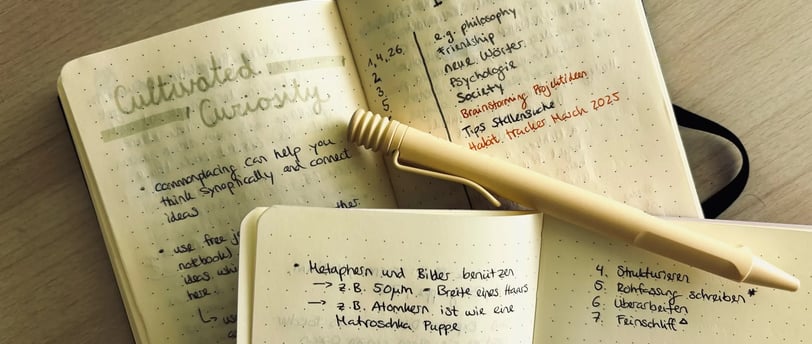 Cultivated
Curiosity
• commonplacing can help you
think synoptically and connect
ideas
• use free
notebook
ideas
here.
1, 4, 26
2
3
5
e.g. philosophy
Friendship
neue Wörter
Psychologie
Society
Brainstorming Projektideen
Tips Stellensuche
Habit tracker March 2025
• Metaphern und Bilder benützen
→ z.B. 50µm - Breite eines Haars
→ z.B. Atomkern ist wie eine
Matroschka Puppe
4. Strukturieren
5. Rohfassung schreiben*
6. Überarbeiten
7. Feinschliff △